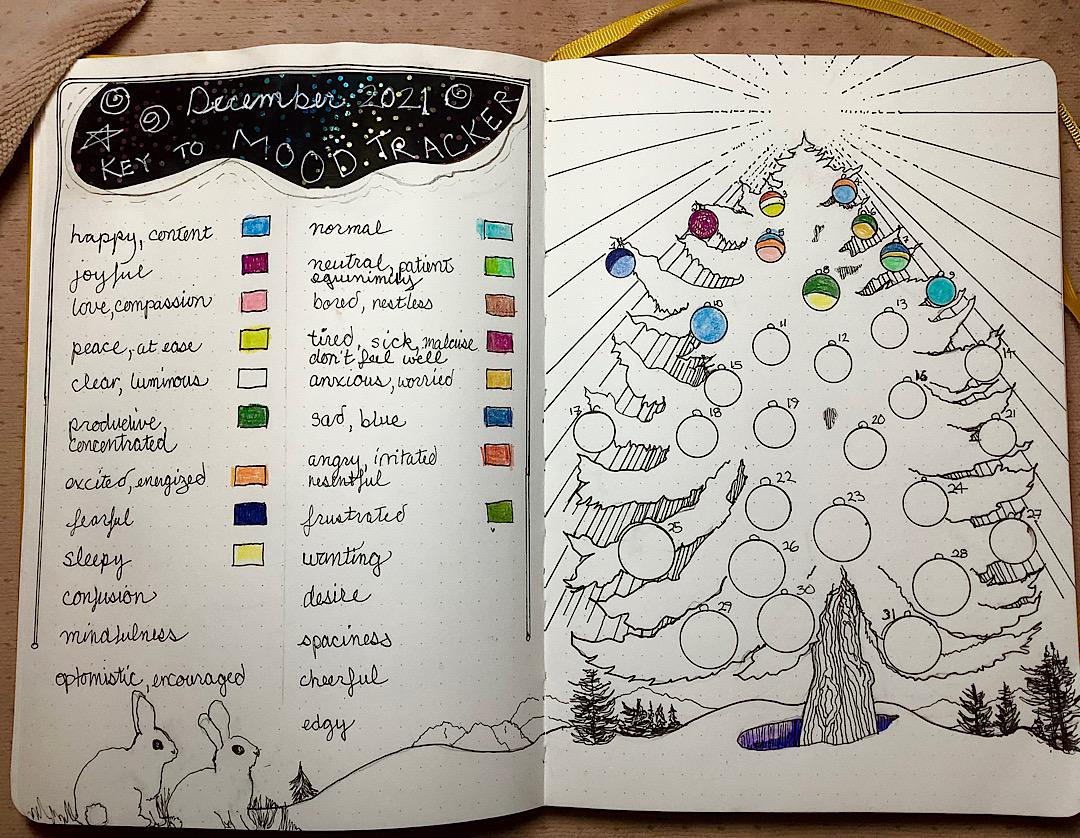 December 2021
KEY TO MOOD TRACKER
happy, content
joyful
love, compassion
peace, at ease
clear, luminous
productive,
concentrated
excited, energized
fearful
sleepy
confusion
mindfulness
optomistic, encouraged
normal
neutral, patient
equinimity
bored, restless
tired, sick, malaise
don't feel well
anxious, worried
sad, blue
angry, irritated
resentful
frustrated
wanting
desire
spaciness
cheerful
edgy
1
5
6
8
9
10
11
12
13
14
15
16
17
18
19
20
21
22
23
24
25
26
27
28
29
30
31